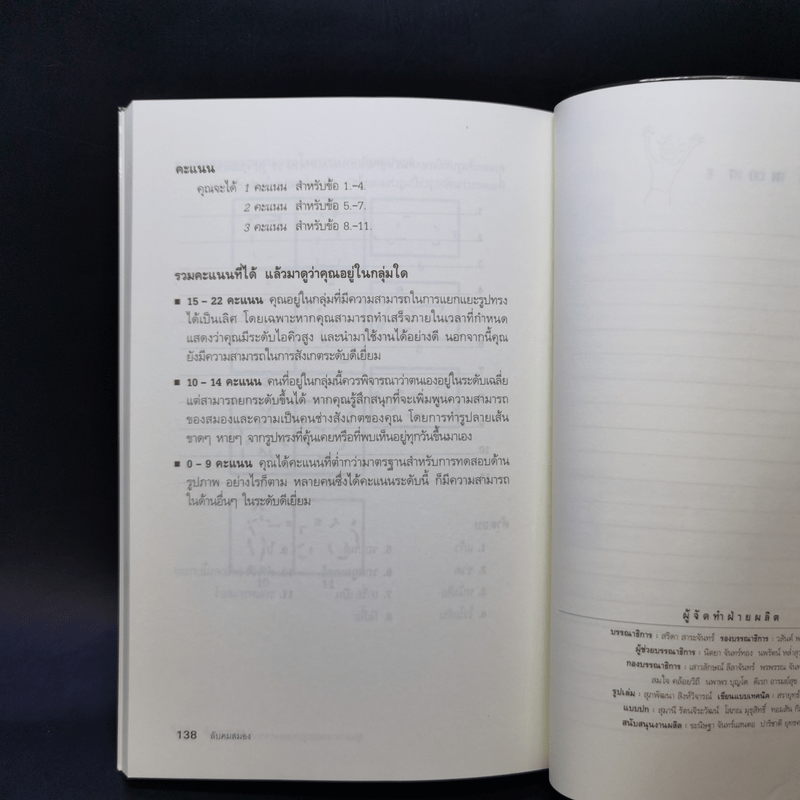 คะแนน
คุณจะได้ 1 คะแนน สำหรับข้อ 1.-4.
2 คะแนน สำหรับข้อ 5.-7.
3 คะแนน สำหรับข้อ 8.-11.
รวมคะแนนที่ได้ แล้วมาดูว่าคุณอยู่ในกลุ่มใด
■ 15 – 22 คะแนน คุณอยู่ในกลุ่มที่มีความสามารถในการแยกแยะรูปทรง
ได้เป็นเลิศ โดยเฉพาะหากคุณสามารถทำเสร็จภายในเวลาที่กำหนด
แสดงว่าคุณมีระดับไอคิวสูง และนำมาใช้งานได้อย่างดี นอกจากนี้คุณ
ยังมีความสามารถในการสังเกตระดับดีเยี่ยม
■ 10 – 14 คะแนน คนที่อยู่ในกลุ่มนี้ควรพิจารณาว่าตนเองอยู่ในระดับเฉลี่ย
แต่สามารถยกระดับขึ้นได้ หากคุณรู้สึกสนุกที่จะเพิ่มพูนความสามารถ
ของสมองและความเป็นคนช่างสังเกตของคุณ โดยการทำรูปลายเส้น
ขาดๆ หายๆ จากรูปทรงที่คุ้นเคยหรือที่พบเห็นอยู่ทุกวันขึ้นมาเอง
■ 0 – 9 คะแนน คุณได้คะแนนที่ต่ำกว่ามาตรฐานสำหรับการทดสอบด้าน
รูปภาพ อย่างไรก็ตาม หลายคนซึ่งได้คะแนนระดับนี้ ก็มีความสามารถ
ในด้านอื่นๆ ในระดับดีเยี่ยม
138 ลับคมสมอง
ผู้จัดทำฝ่ายผลิต
บรรณาธิการ : สริดา สาระจันทร์ รองบรรณาธิการ : วสันต์
ผู้ช่วยบรรณาธิการ : นิตยา จันทร์ทอง นพรัตน์
กองบรรณาธิการ : เสาวลักษณ์ ลีลาจันทร์ พรพรรณ
สมใจ คล้อยวิถี นพาพร บุญโต ดิเรก อารมย์สุข
รูปเล่ม : สุภพัฒนา สิงห์วิจารณ์ เขียนแบบเทคนิค :
แบบปก : สุมานี รัตนจิระวัฒน์ โสภณ มุรุสิทธิ์
สนับสนุนงานผลิต : ชะนิษฐา จันทร์แสนตอ ปาริชาติ